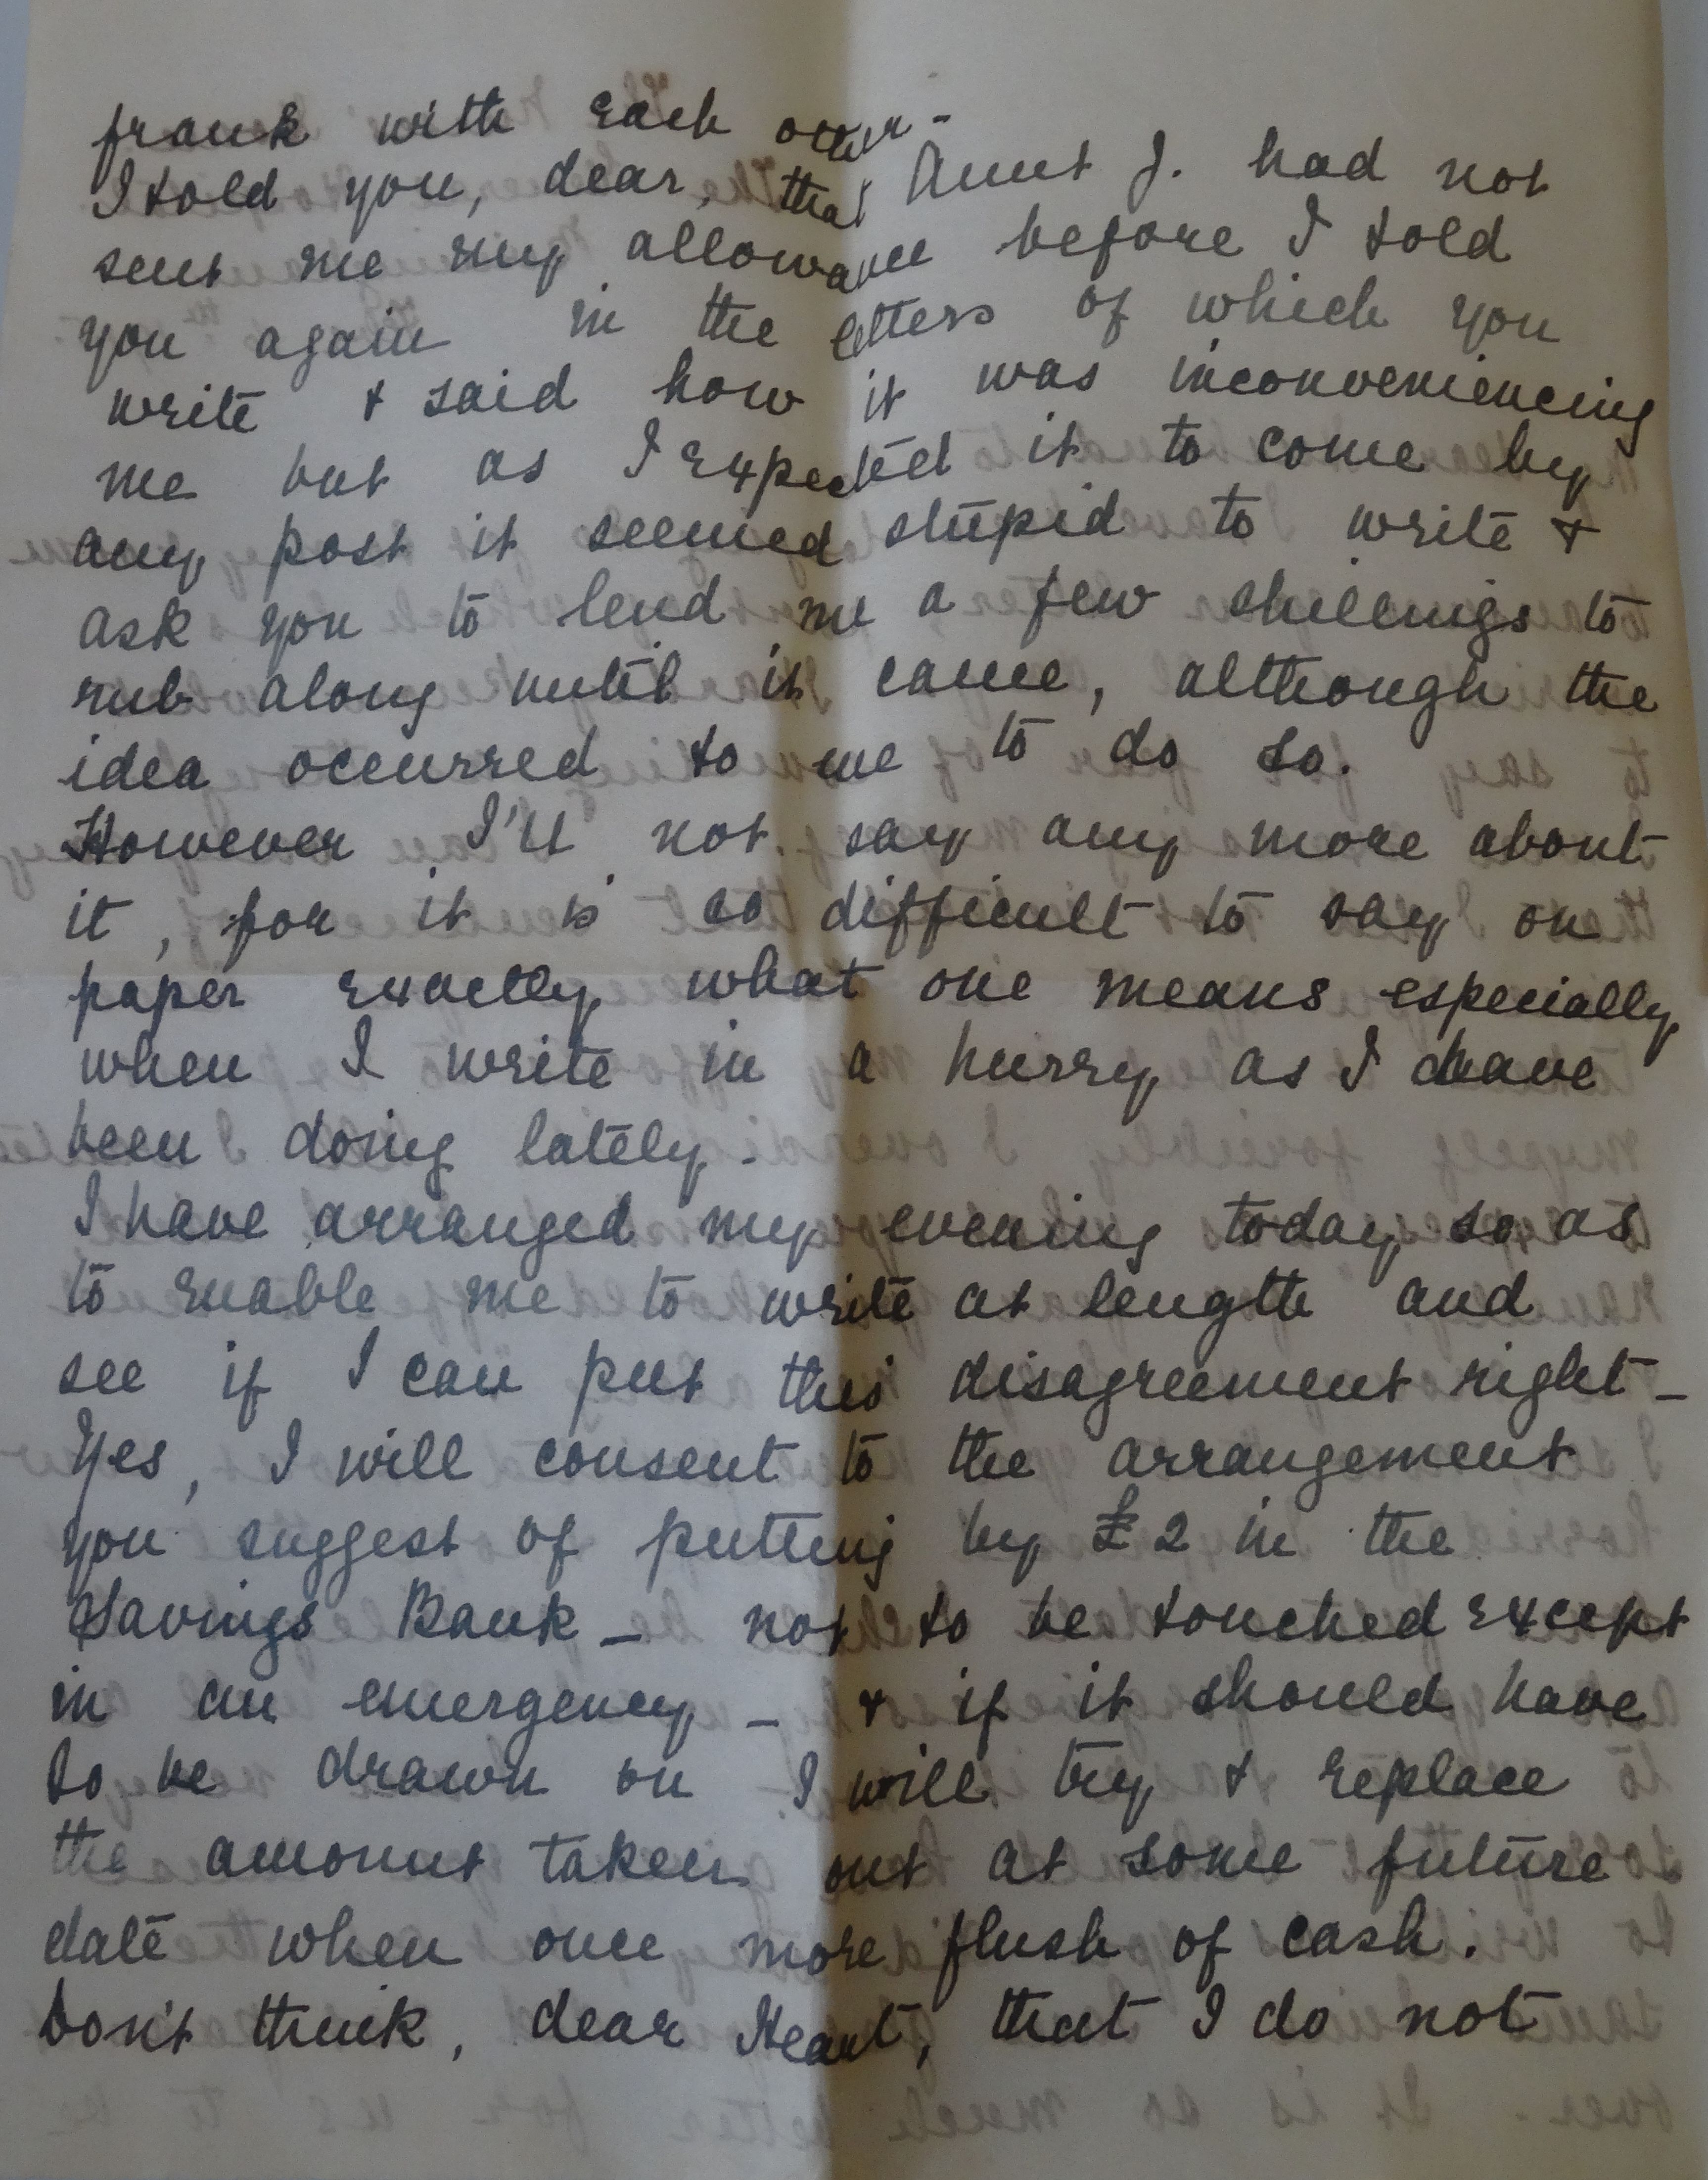 frank with each other -
I told you, dear, that Aunt J. had not
sent me my allowance before I told
you again in the letters of which you
write & said how it was inconveniencing
me but as I expected it to come by
any post it seemed stupid to write &
ask you to lend me a few shillings to
rub along until it came, although the
idea occurred to me to do so.
However I'll not say any more about
it, for it is so difficult to say on
paper exactly what one means especially
when I write in a hurry as I have
been doing lately.
I have arranged my evening today so as
to enable me to write at length and
see if I can put this disagreement right -
Yes, I will consent to the arrangement
you suggest of putting by £2 in the
Savings Bank - not to be touched except
in an emergency - & if it should have
to be drawn on I will try & replace
the amount taken out at some future
date when once more flush of cash.
Don't think, dear Heart, that I do not